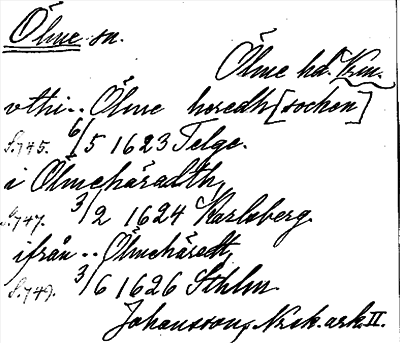 Ölme sn.
Ölme hd. Vrm.
vthi.. Ölme heredh [sochen]
S.745. 6/5 1623 Telge.
i Ölmehäradth,
S.747. 3/2 1624 Karlsberg.
ifrån .. Ölmehäredt,
S.749. 3/6 1626 Sthlm
Johansson, Nrk. ark. II.